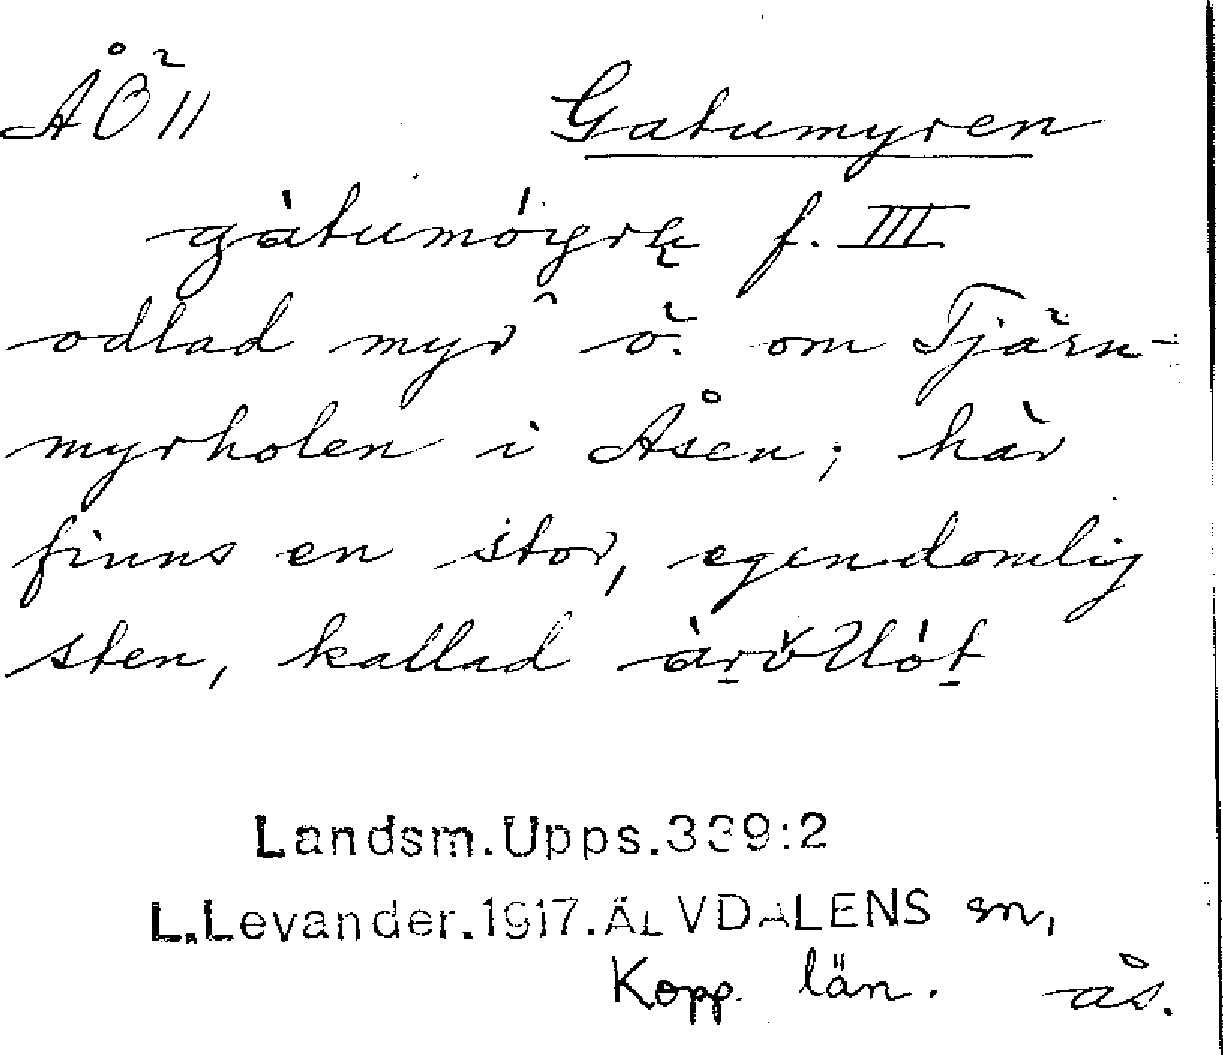 ÅÖ 11 Gatumyren
gàtumó̀yrę f. III
odlad myr ö. om Tjärn-
myrholen i Åsen; här
finns en stor, egendomlig
sten, kallad
Landsm.Upps.339:2
L.Levander.1917.ÄLVDALENS sn,
Kopp. län. ås.